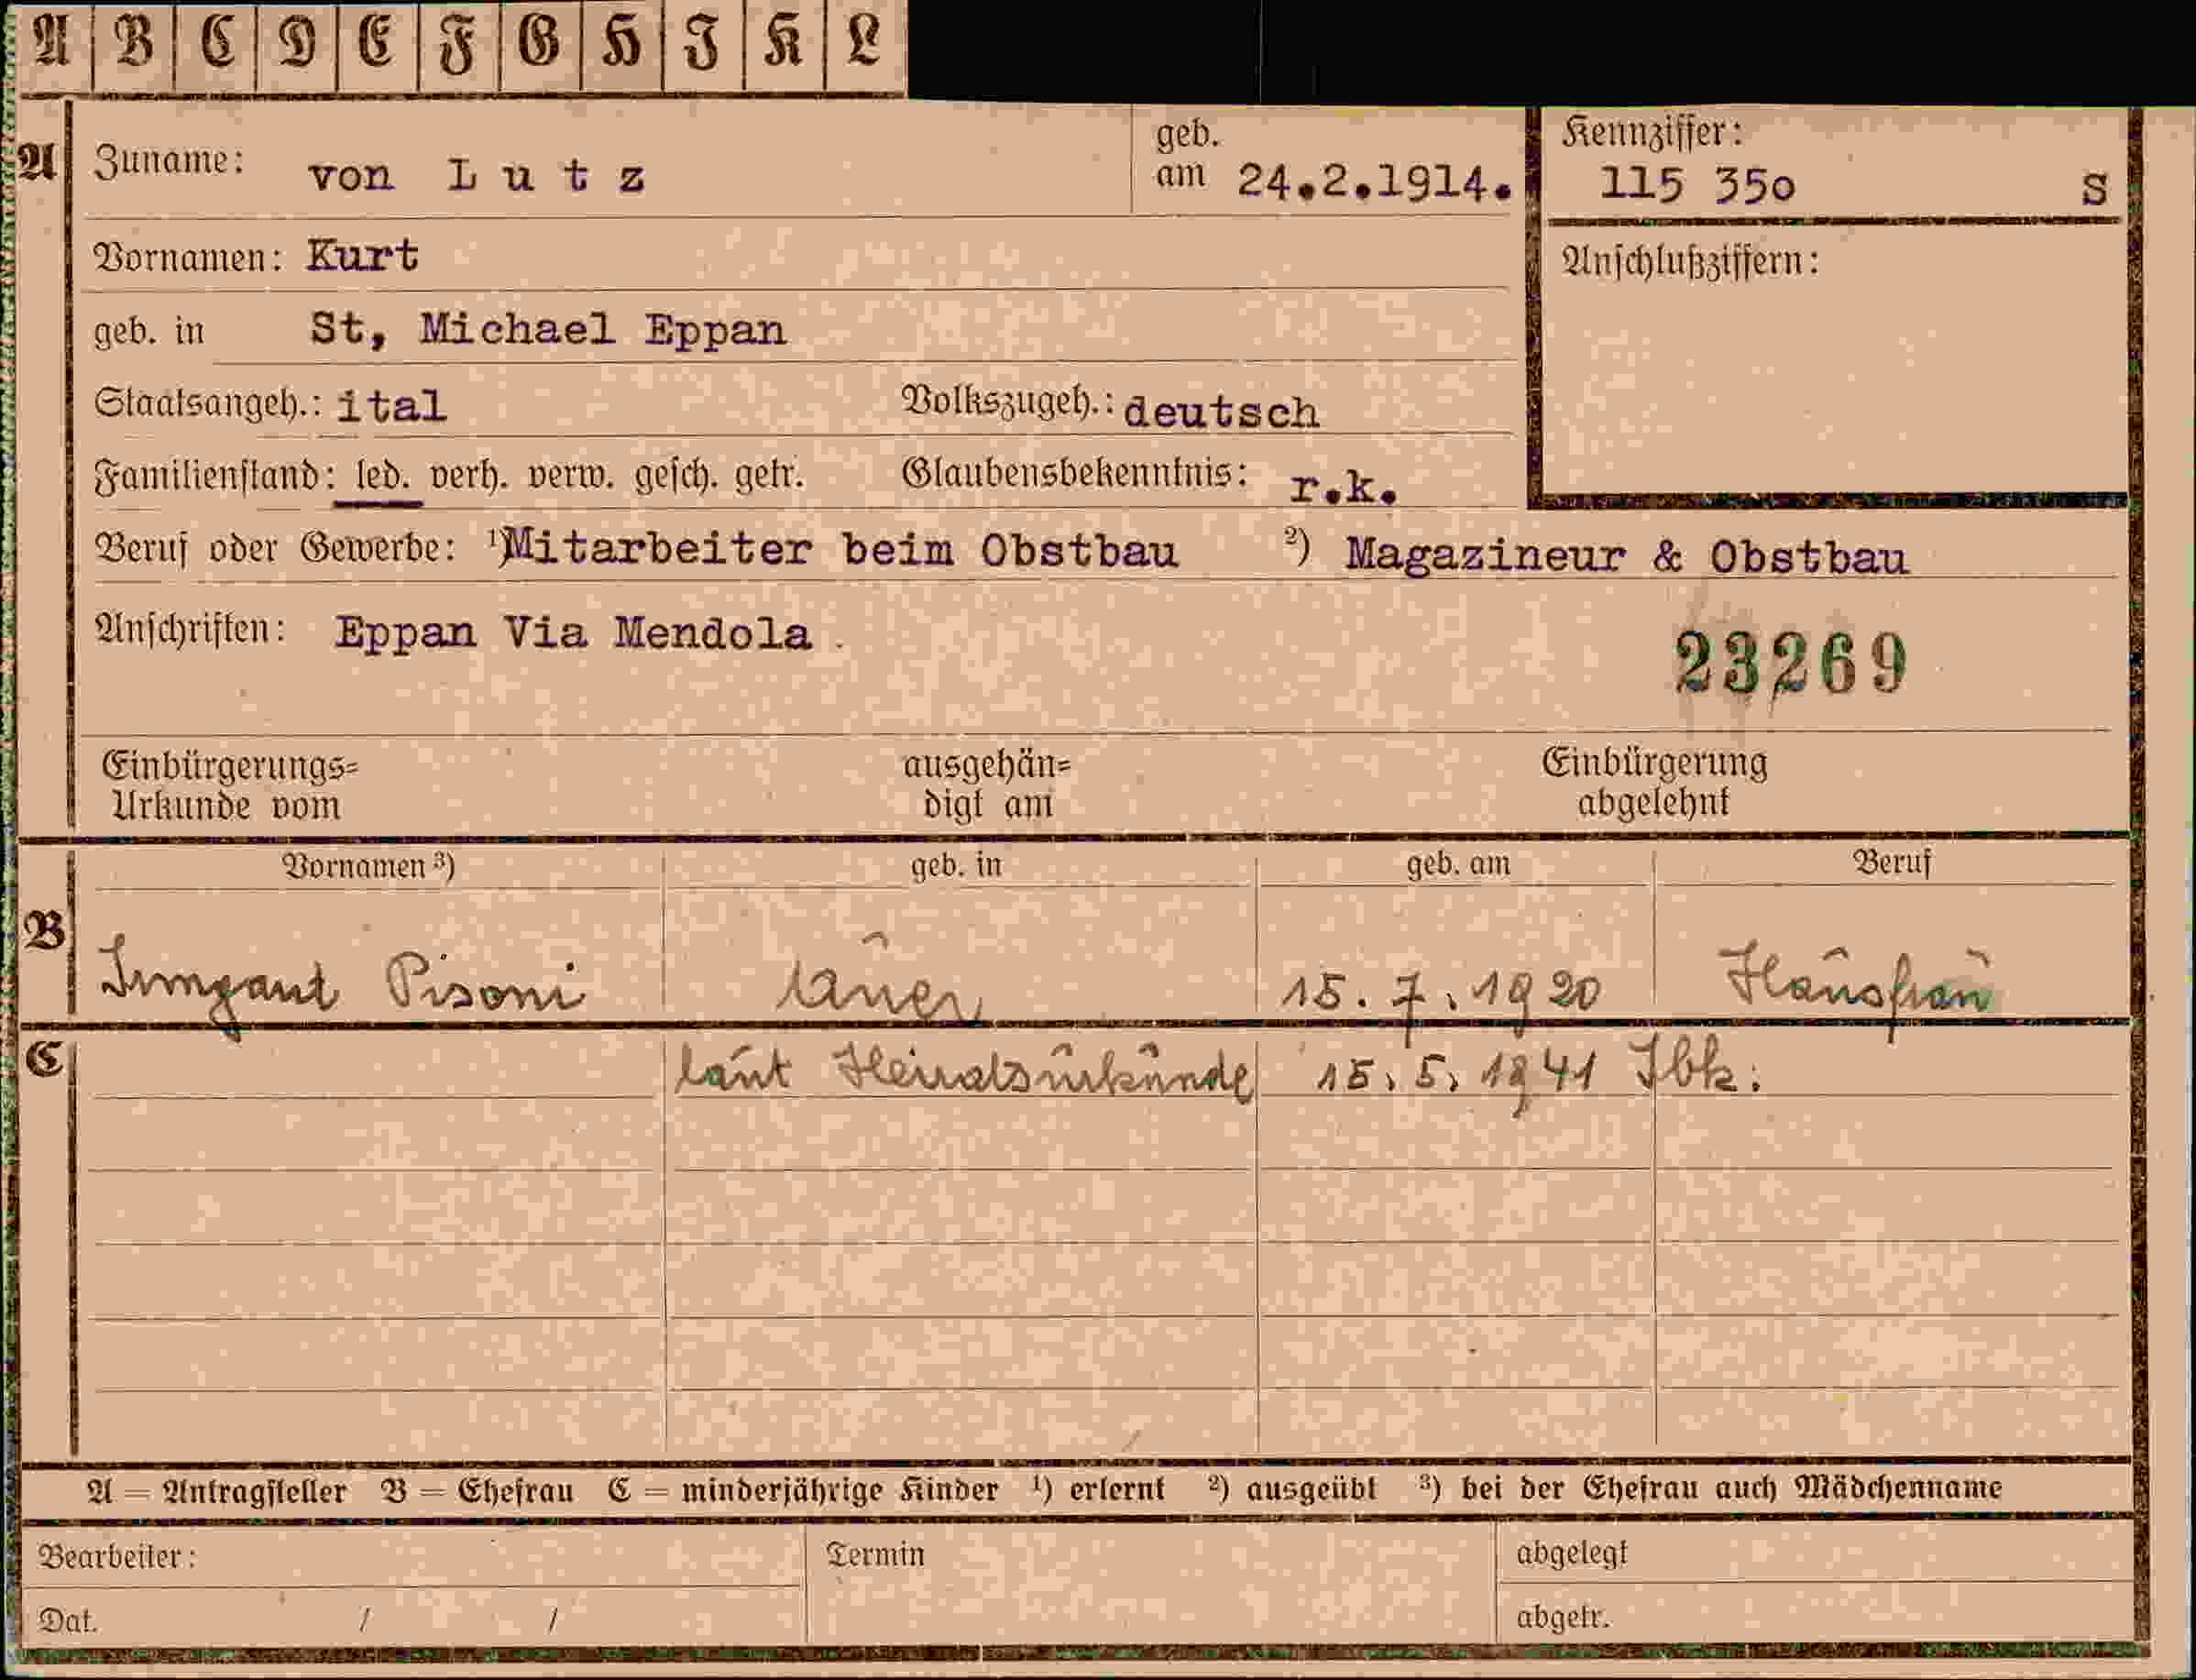 A B C D E F G H J K L
A Zuname: von L u t z geb. am 24.2.1914. Kennziffer: 115 350 S
Vornamen: Kurt Anschlußziffern:
geb. in St, Michael Eppan
Staatsangeh.: ital Volkszugeh.: deutsch
Familienstand: led. verh. verw. gesch. getr. Glaubensbekenntnis: r.k.
Beruf oder Gewerbe: ¹) Mitarbeiter beim Obstbau ²) Magazineur & Obstbau
Anschriften: Eppan Via Mendola
23269
Einbürgerungs= ausgehän= Einbürgerung
Urkunde vom digt am abgelehnt
Vornamen ³) geb. in geb. am Beruf
B Irmgard Pisoni 15. 7. 1920 Hausfrau
C laut Heiratsurkunde 15. 5. 1941 Ibk.
A = Antragsteller B = Ehefrau C = minderjährige Kinder ¹) erlernt ²) ausgeübt ³) bei der Ehefrau auch Mädchenname
Bearbeiter: Termin abgelegt
Dat. / / abgetr.